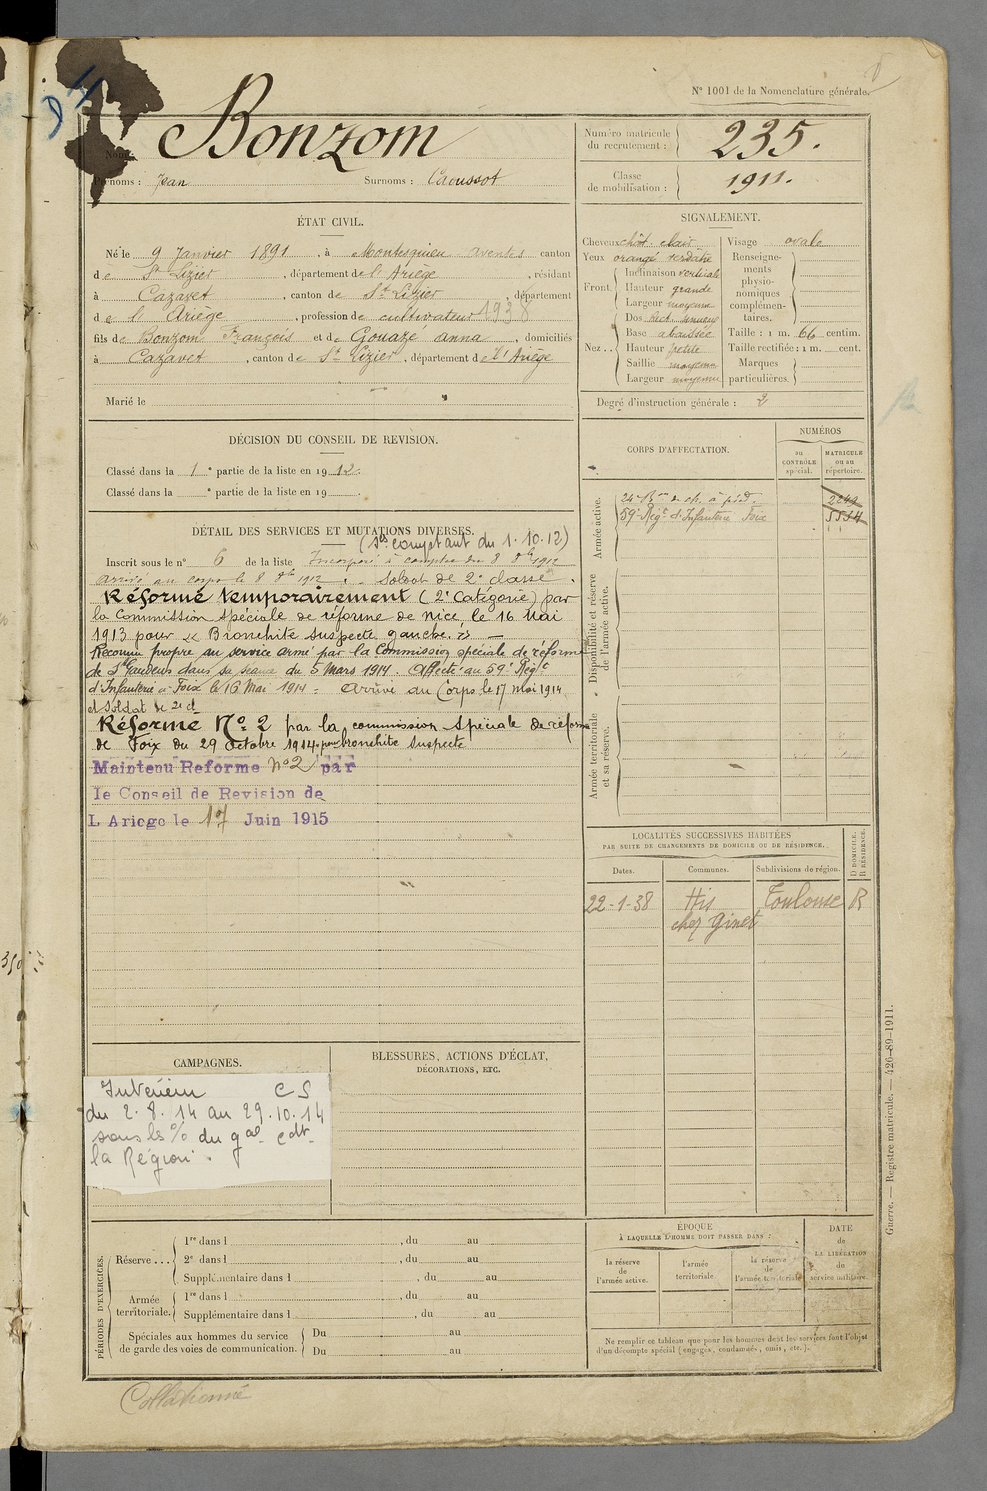 N° 1001 de la Nomenclature générale.
Nom : Bonzom
Prénoms : Jean Surnoms : Caoussot
Numéro matricule du recrutement : 235.
Classe de mobilisation : 1911.
ÉTAT CIVIL.
Né le 9 Janvier 1891, à Montesquieu-avantès canton
de St Lizier, département de l'Ariège, résidant
à Cazavet, canton de St Lizier, département
de l'Ariège, profession de cultivateur 1938
fils de Bonzom François et de Gouazé anna, domiciliés
à Cazavet, canton de St Lizier, département de l'Ariège
Marié le
SIGNALEMENT.
Cheveux chât. clair Visage ovale
Yeux orangé verdâtre
Front. Inclinaison verticale
Hauteur grande
Largeur moyenne
Nez.. Dos rect.
Base abaissée
Hauteur petite
Saillie moyenne
Largeur moyenne
Renseignements physionomiques complémentaires.
Taille : 1 m. 66 centim.
Taille rectifiée : 1 m. cent.
Marques particulières.
Degré d'instruction générale : 2
DÉCISION DU CONSEIL DE REVISION.
Classé dans la 1e partie de la liste en 1912.
Classé dans la e partie de la liste en 19 .
CORPS D'AFFECTATION.
NUMÉROS
au CONTRÔLE spécial.
MATRICULE ou au répertoire.
Armée active.
24e Bon de ch. à pied. 2249
59e Régt d'Infanterie Foix 5554
Disponibilité et réserve de l'armée active.
Armée territoriale et sa réserve.
DÉTAIL DES SERVICES ET MUTATIONS DIVERSES.
(Ses comptant du 1.10.12)
Inscrit sous le n° 6 de la liste Incorporé à compter du 8 8bre 1912
arrivé au corps le 8 8bre 1912. Soldat de 2e classe.
Réformé temporairement (2e Catégorie) par
la Commission spéciale de réforme de Nice le 16 Mai
1913 pour « Bronchite suspecte gauche. » —
Reconnu propre au service armé par la Commission spéciale de réforme
de St Gaudens dans sa séance du 5 Mars 1914. Affecté au 59e Régt
d'Infanterie à Foix le 16 Mai 1914 = Arrivé au Corps le 17 mai 1914
et soldat de 2e cl
Réformé N° 2 par la commission spéciale de réforme
de Foix du 29 octobre 1914. pour bronchite suspecte
Maintenu Reforme n° 2 par
le Conseil de Revision de
L Ariege le 17 Juin 1915
LOCALITÉS SUCCESSIVES HABITÉES
PAR SUITE DE CHANGEMENTS DE DOMICILE OU DE RÉSIDENCE.
Dates. Communes. Subdivisions de région. D DOMICILE. R RÉSIDENCE.
22-1-38 His Toulouse R
chez Ginet
CAMPAGNES.
Intérieur CS
du 2.8.14 au 29.10.14
sous les % du gal cdt
la Région.
BLESSURES, ACTIONS D'ÉCLAT,
DÉCORATIONS, ETC.
PÉRIODES D'EXERCICES.
Réserve... 1re dans l , du au
2e dans l , du au
Supplémentaire dans l , du au
Armée territoriale. 1re dans l , du au
Supplémentaire dans l , du au
Spéciales aux hommes du service de garde des voies de communication. Du au
Du au
ÉPOQUE
À LAQUELLE L'HOMME DOIT PASSER DANS :
la réserve de l'armée active.
l'armée territoriale
la réserve de l'armée territoriale
DATE de LA LIBÉRATION du service militaire.
Ne remplir ce tableau que pour les hommes dont les services font l'objet
d'un décompte spécial (engagés, condamnés, omis, etc.).
Guerre. — Registre matricule. — 426-89-1911.
Collationné